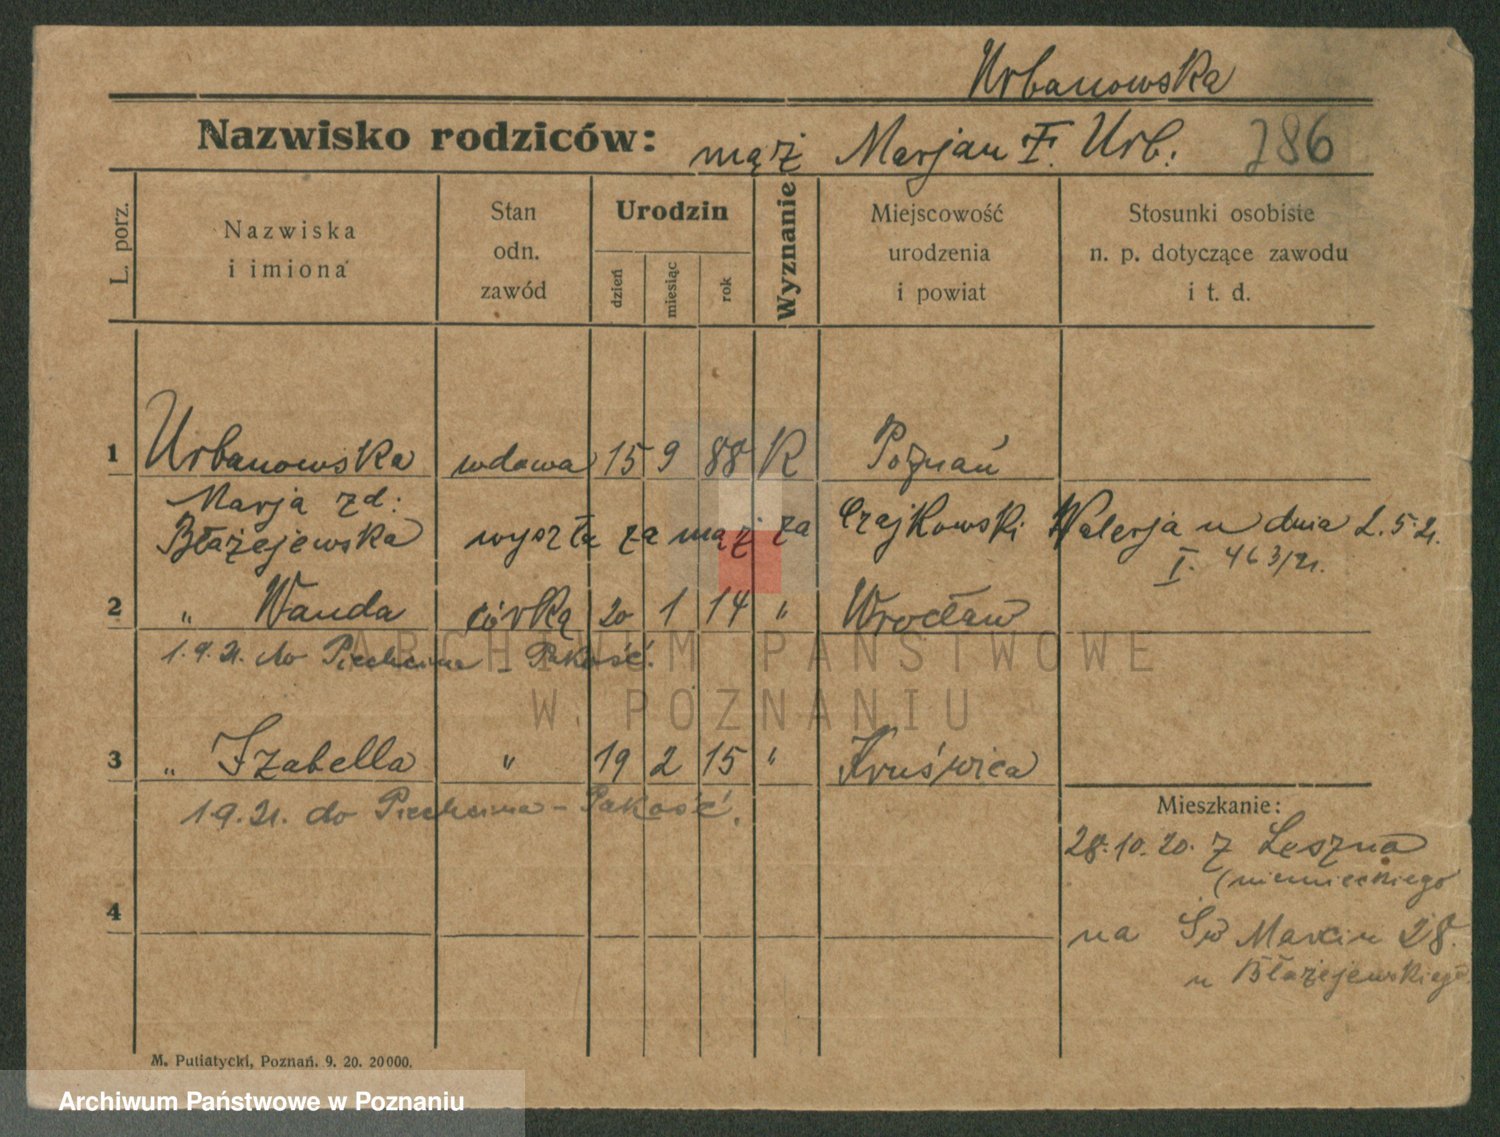 Urbanowska
Nazwisko rodziców: mąż Marjan F. Urb. 286
L. porz.
Nazwiska
i imiona
Stan
odn.
zawód
Urodzin
dzień
miesiąc
rok
Wyznanie
Miejscowość
urodzenia
i powiat
Stosunki osobiste
n. p. dotyczące zawodu
i t. d.
1 Urbanowska wdowa 15 9 88 K Poznań
Marja zd:
Błażejewska wyszła za mąż za Czajkowski Walerja u dnia 2.5.21.
I. 463/21.
2 " Wanda córką 20 1 14 " Wrocław
1.9.21. do Piechcina - Pakość.
ARCHIWUM PAŃSTWOWE
W POZNANIU
3 " Izabella " 19 2 15 " Kruświca
1.9.21. do Piechcina - Pakość.
Mieszkanie:
28.10.20. z Leszna
(niemieckiego
4
na Św Marcin 28.
u Błażejewskiego
M. Putiatycki, Poznań. 9. 20. 20000.
Archiwum Państwowe w Poznaniu